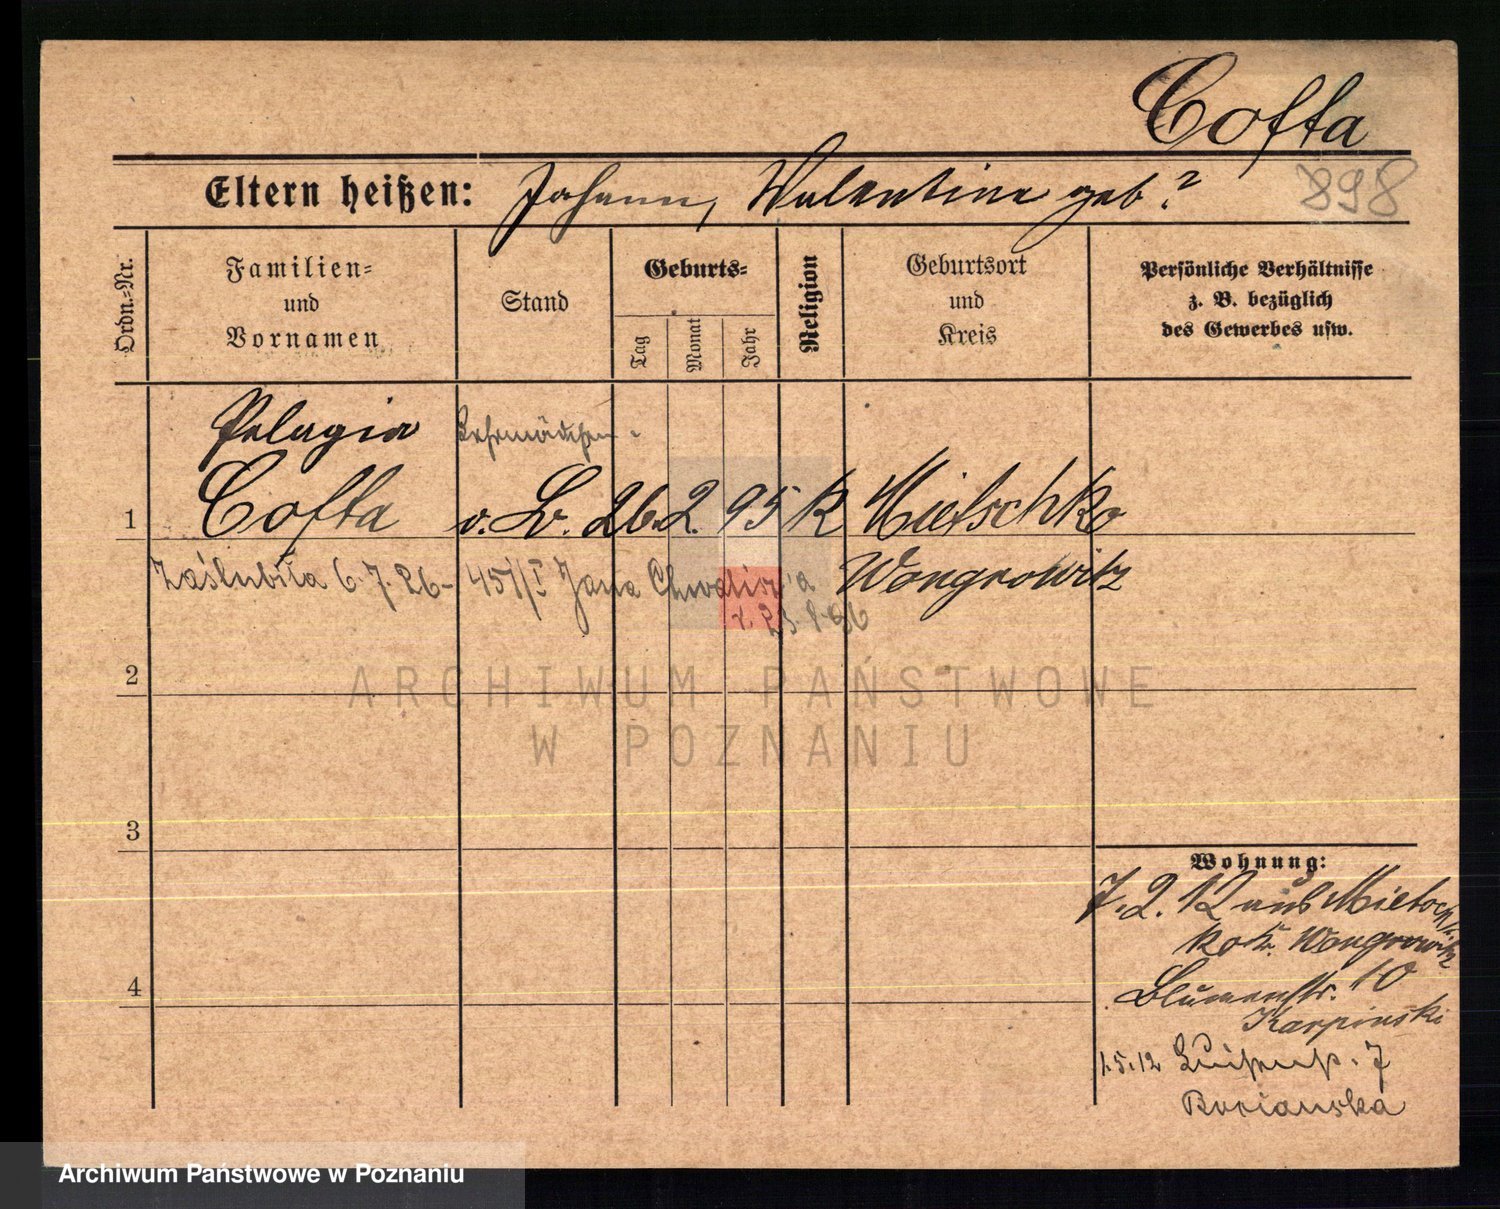 Cofta
898
Eltern heißen: Johann, Valentine geb?
Ordn.-Nr.
Familien- und Vornamen
Stand
Geburts-
Tag
Monat
Jahr
Religion
Geburtsort und Kreis
Persönliche Verhältnisse
z. B. bezüglich
des Gewerbes usw.
Pelagia Lehrmädchen
1 Cofta v. L. 26. 2. 95 K Mietschko
Zaślubiła 6.7.26- 457/I Jana Wongrowitz
r. 23.8.86
2
ARCHIWUM PAŃSTWOWE
W POZNANIU
3
Wohnung:
7.2.12 aus Mietsch
ko Kr. Wongrowitz
4
Blumenstr. 10
Karpinski
1.5.12 Luisenstr. 7
Archiwum Państwowe w Poznaniu